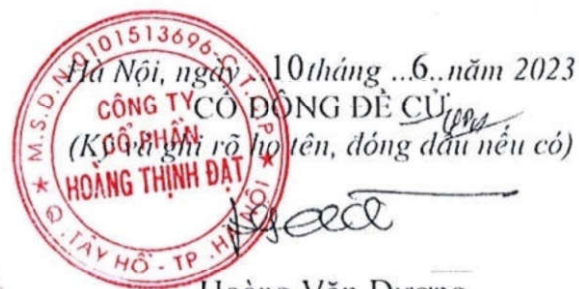 Hà Nội, ngày ..10 tháng ...6.. năm 2023
CỔ ĐÔNG ĐỀ CỬ
(Ký và ghi rõ họ tên, đóng dấu nếu có)
M.S.D.N:0101513696-C.T.C.P
CÔNG TY
CỔ PHẦN
HOÀNG THỊNH ĐẠT
Q.TÂY HỒ - TP.HÀ NỘI
Hoàng Văn Dương